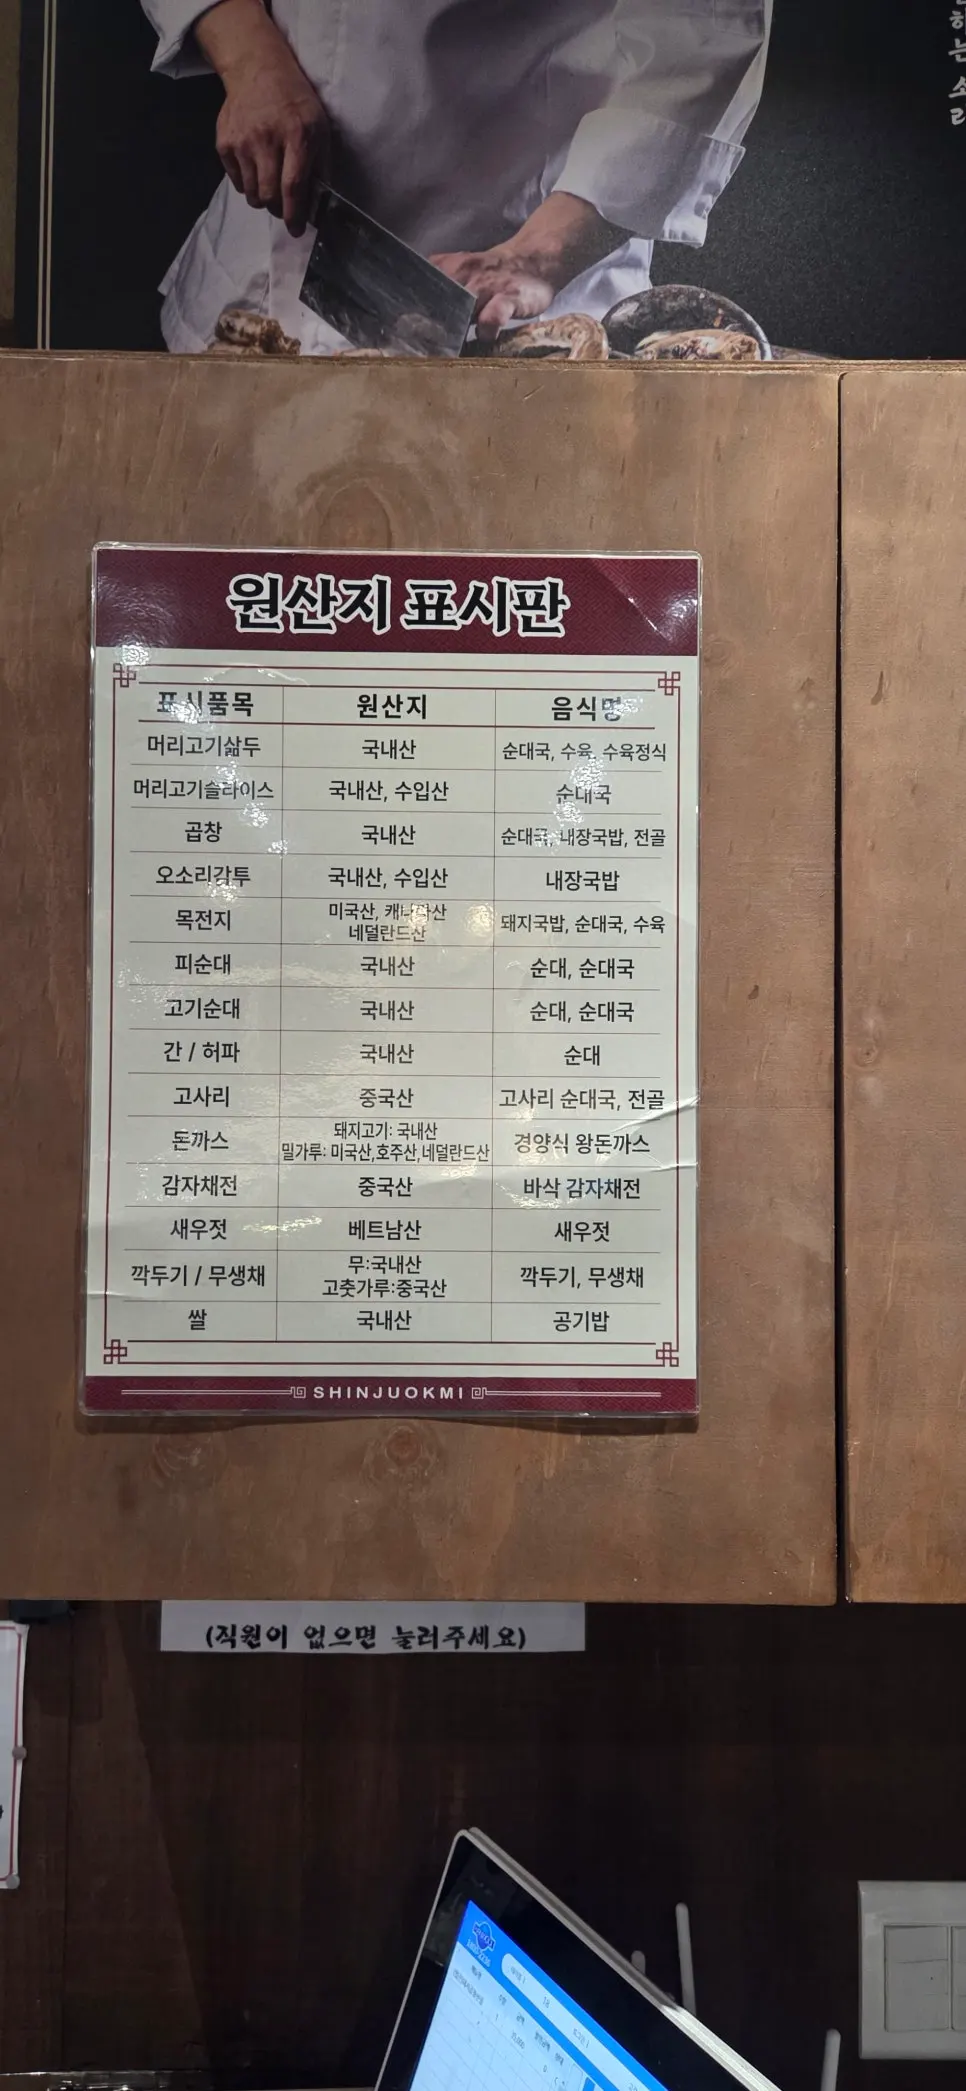 하는 소리
원산지 표시판
표시품목 원산지 음식명
머리고기삶두 국내산 순대국, 수육, 수육정식
머리고기슬라이스 국내산, 수입산 순대국
곱창 국내산 순대국, 내장국밥, 전골
오소리감투 국내산, 수입산 내장국밥
목전지 미국산, 캐나다산 네덜란드산 돼지국밥, 순대국, 수육
피순대 국내산 순대, 순대국
고기순대 국내산 순대, 순대국
간 / 허파 국내산 순대
고사리 중국산 고사리 순대국, 전골
돈까스 돼지고기: 국내산 밀가루: 미국산,호주산,네덜란드산 경양식 왕돈까스
감자채전 중국산 바삭 감자채전
새우젓 베트남산 새우젓
깍두기 / 무생채 무:국내산 고춧가루:중국산 깍두기, 무생채
쌀 국내산 공기밥
SHINJUOKMI
(직원이 없으면 눌러주세요)